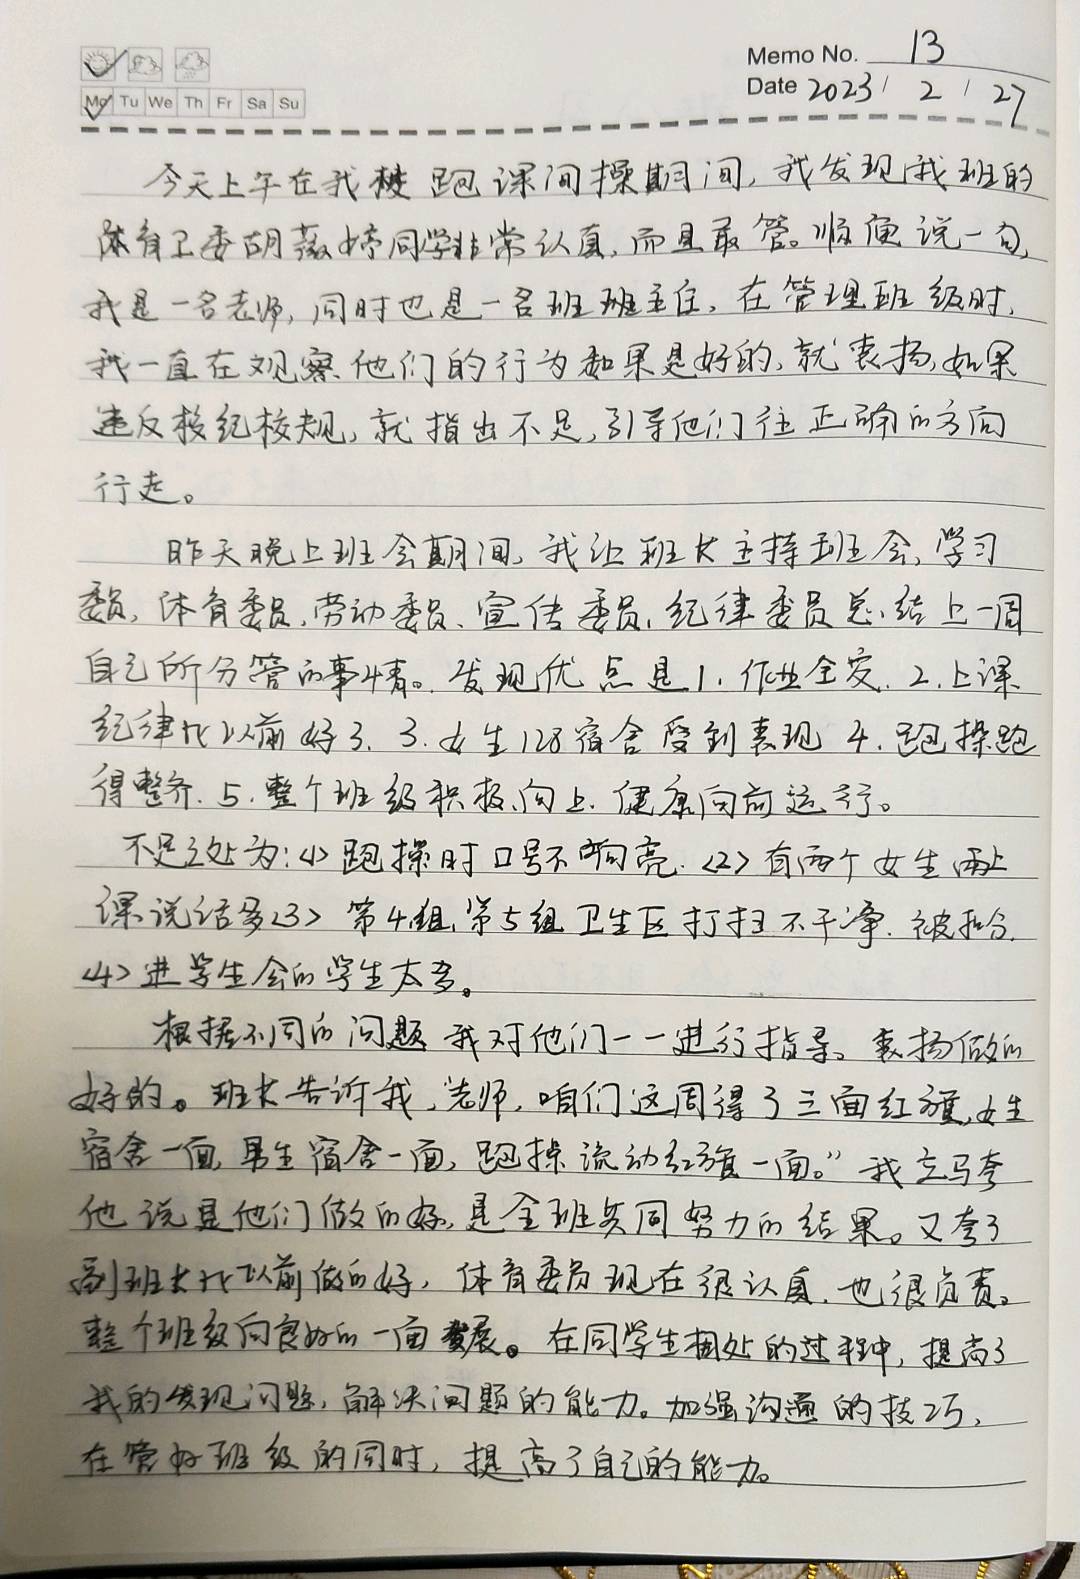 Memo No. 13
Mo Tu We Th Fr Sa Su
Date 2023 / 2 / 27
今天上午在我校跑课间操期间,我发现我班的
体育卫委胡薇婷同学非常认真,而且敢管。顺便说一句,
我是一名老师,同时也是一名班班主任,在管理班级时,
我一直在观察他们的行为如果是好的,就表扬,如果
违反校纪校规,就指出不足,引导他们往正确的方向
行走。
昨天晚上班会期间,我让班长主持班会,学习
委员,体育委员,劳动委员、宣传委员,纪律委员总结上一周
自己所分管的事情。发现优点是1.作业全交.2.上课
纪律比以前好了.3.女生128宿舍受到表现4.跑操跑
得整齐.5.整个班级积极向上.健康向前运行。
不足之处为:<1>跑操时口号不响亮.<2>有两个女生
课说话多<3>第4组,第5组卫生区打扫不干净.被扣分.
<4>进学生会的学生太多。
根据不同的问题我对他们一一进行指导。表扬做的
好的。班长告诉我,“老师,咱们这周得了三面红旗,女生
宿舍一面,男生宿舍一面,跑操流动红旗一面。”我立马夸
他说是他们做的好,是全班共同努力的结果。又夸了
副班长比以前做的好,体育委员现在很认真.也很负责。
整个班级向良好的一面发展。在同学生相处的过程中,提高了
我的发现问题,解决问题的能力。加强沟通的技巧,
在管好班级的同时,提高了自己的能力。